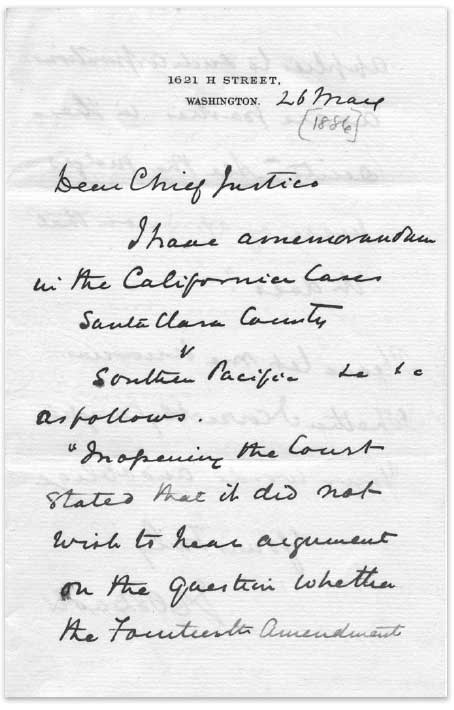 1621 H STREET,
WASHINGTON. 26 May
[1886]
Dear Chief Justice
I have a memorandum
in the California Cases
Santa Clara County
v
Southern Pacific &c &c
as follows.
"In opening the Court
stated that it did not
wish to hear argument
on the question whether
the Fourteenth Amendment